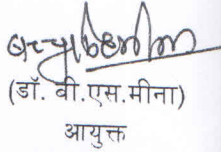 (डॉ. वी.एस.मीना)
आयुक्त